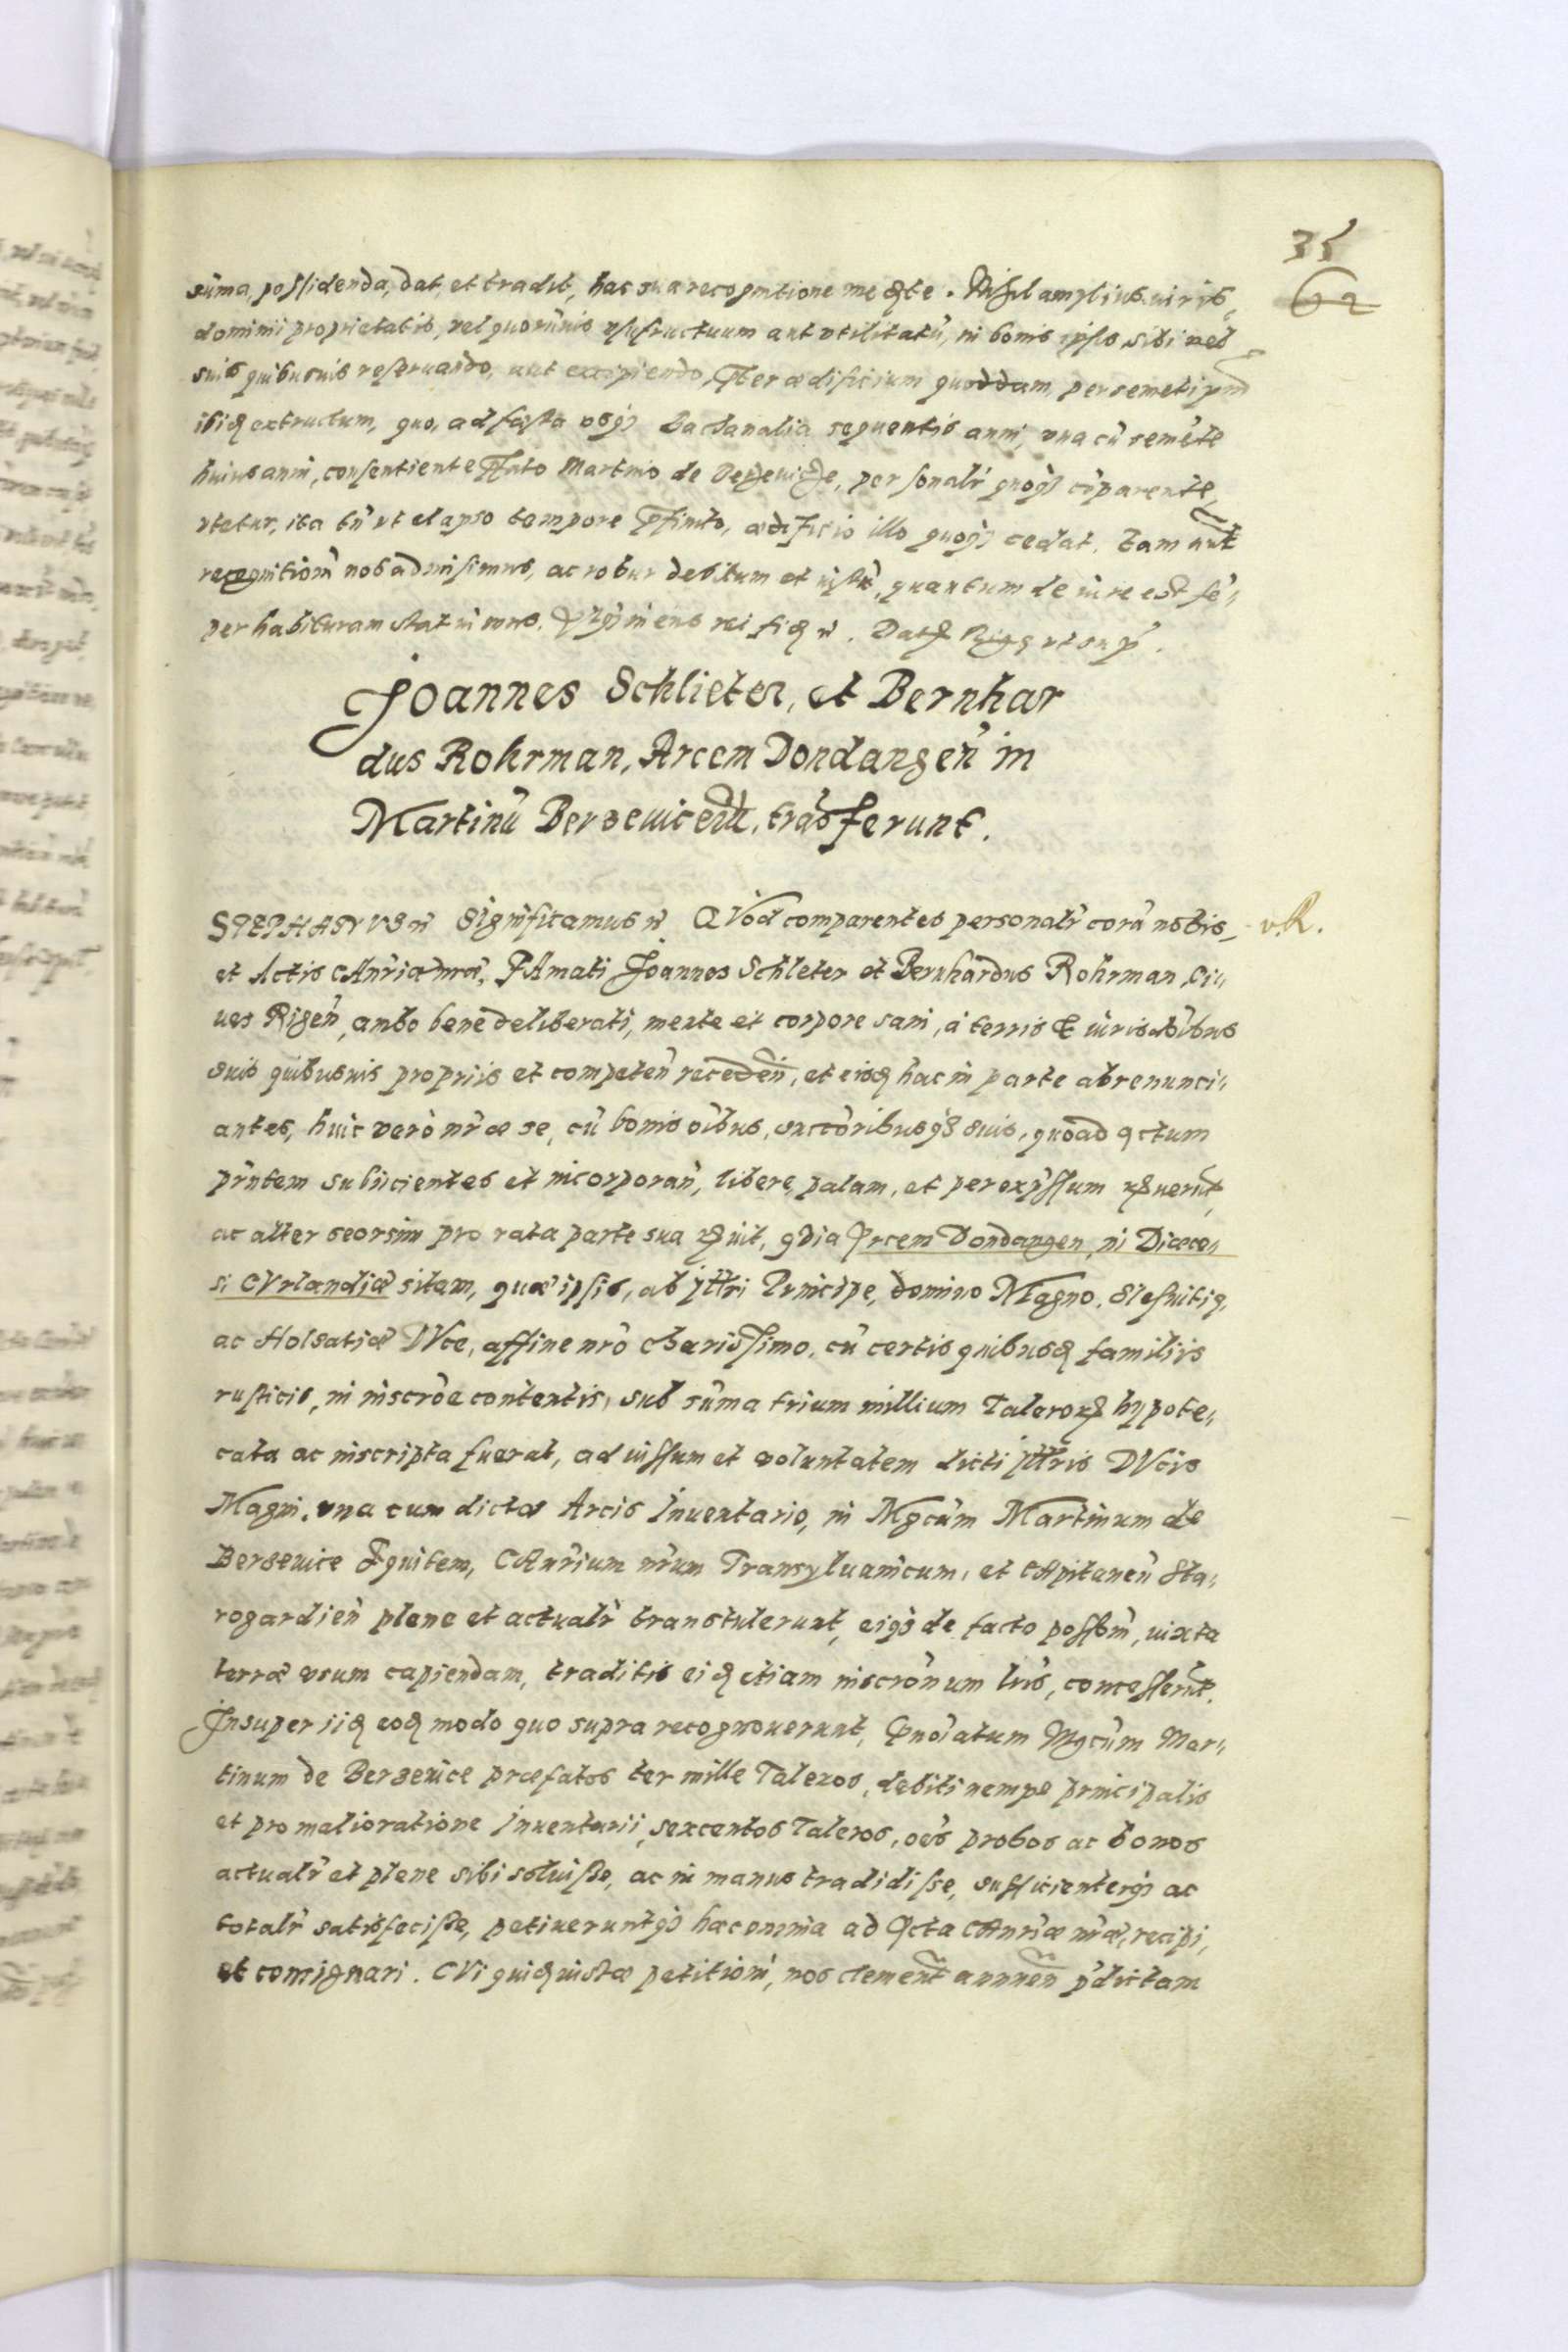 35
62
sūma, possidenda, dat, et tradit, hac sua recognitione mediāte. Nihil amplius iuris,
dominii proprietatis, vel quorūnis vsufructuum aut vtilitatū, in bonis ipsis sibi vel
suis quibusuis reseruando, aut excipiendo, pter ædificium quoddam, per semetipm
ibiq extructum, quo, ad festa vsq Bachanalia sequentis anni, vna cū semēte
huius anni, consentiente pfato Martino de Berzeuicze, personalr quoq cōparente,
vtatur, ita tn̄ vt elapso tempore pfinito, ædificio illo quoq cedat. Eam aut
recognitionē nos admisimus, ac robur debitum et iustū, quantum de iure est sē„
per habituram statuimus. In cuius rei fidē n̄. Dat Rigæ vt sup̄.
Joannes Schlieter, et Bernhar
dus Rohrman, Arcem Dondangeñ in
Martinū Berzeuiceum, trāsferunt.
STEPHANVS n̄ Significamus n̄ QVod comparentes personalr corā nobis,
v.R.
et Actis CAnriæ nræ, FAmati Joannes Schleter et Bernhardus Rohrman, Ci„
ues Rigeñ, ambo bene deliberati, mente et corpore sani, à terris et iurisdoībus
suis quibusuis propriis et competeñ recedeñ, et eisq hac in parte abrenunci„
antes, huic verò nræ se, cū bonis oībus, succōribusq suis, quoad actum
pn̄tem subiicientes et incorporañ, libere, palam, et per exp̄ssum recognouerūt,
ac alter seorsim pro rata parte sua recognouit, quia Arcem Dondangen, in Diœce„
si CVrlandiæ sitam, quæ ipsis, ab Illri Principe, domino Magno, Slesuitiæ,
ac Holsatiæ DVce, affine nr̄o charissimo, cū certis quibusq familiis
rusticis, in inscrōe contentis, sub sūma trium millium Talerorū hypote„
cata ac inscripta fuerat, ad iussum et voluntatem dicti Illris DVcis
Magni, vna cum dictæ Arcis Inuentario, in Mgcūm Martinum de
Berzeuice Equitem, CAnrium nrum Transyluanicum, et CApitaneū Sta„
rogardieñ plene et actualr transtulerunt, eiq de facto possōm, iuxta
terræ vsum capiendam, traditis ei q etiam inscrōnum lris, concesserūt.
Insuper iiq eoq modo quo supra recognouerunt, Pnōiatum Mgcūm Mar„
tinum de Berzeuice præfatos ter mille Taleros, debiti nempe principalis
et pro melioratione Inuentarii, sexcentos Taleros, oēs probos ac bonos
actualr et plene sibi soluisse, ac in manus tradidisse, sufficienterq ac
totalr satisfecisse, petiueruntq hæc omnia ad Acta CAnriæ nræ, recipi,
et consignari. CVi quiq iustæ petitioni, nos clementr annueñ p̄dictam